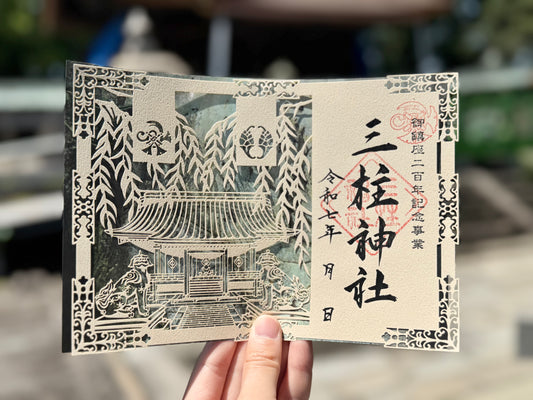 御鎮座二百年記念事業
三柱神社
令和七年 月 日